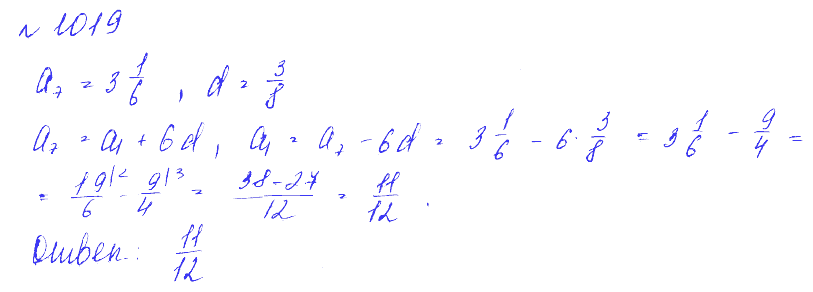 № 1019
a₇ = 3 1/6 , d = 3/8
a₇ = a₁ + 6d, a₁ = a₇ - 6d = 3 1/6 - 6 · 3/8 = 3 1/6 - 9/4 =
= 19|2/6 - 9|3/4 = 38-27/12 = 11/12 .
Ответ: 11/12